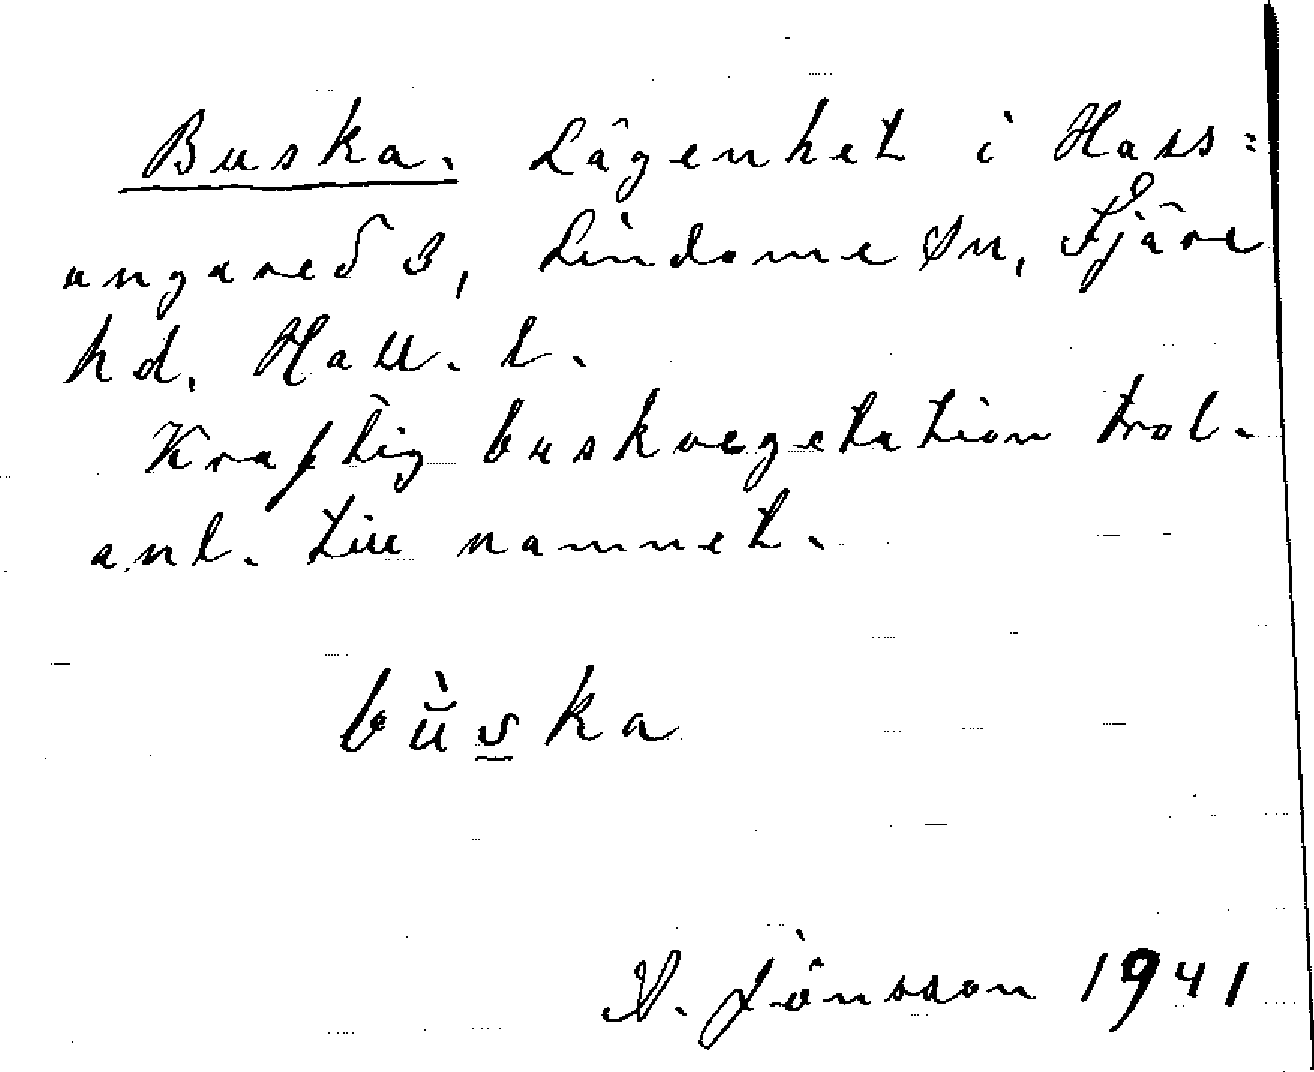 Buska. Lägenhet i Hass=
ungared 3, Lindome sn, Fjäre
hd. Hall. l.
Kraftig buskvegetation trol.
anl. till namnet.
bŭ̀s̲ka
V. Jönsson 1941